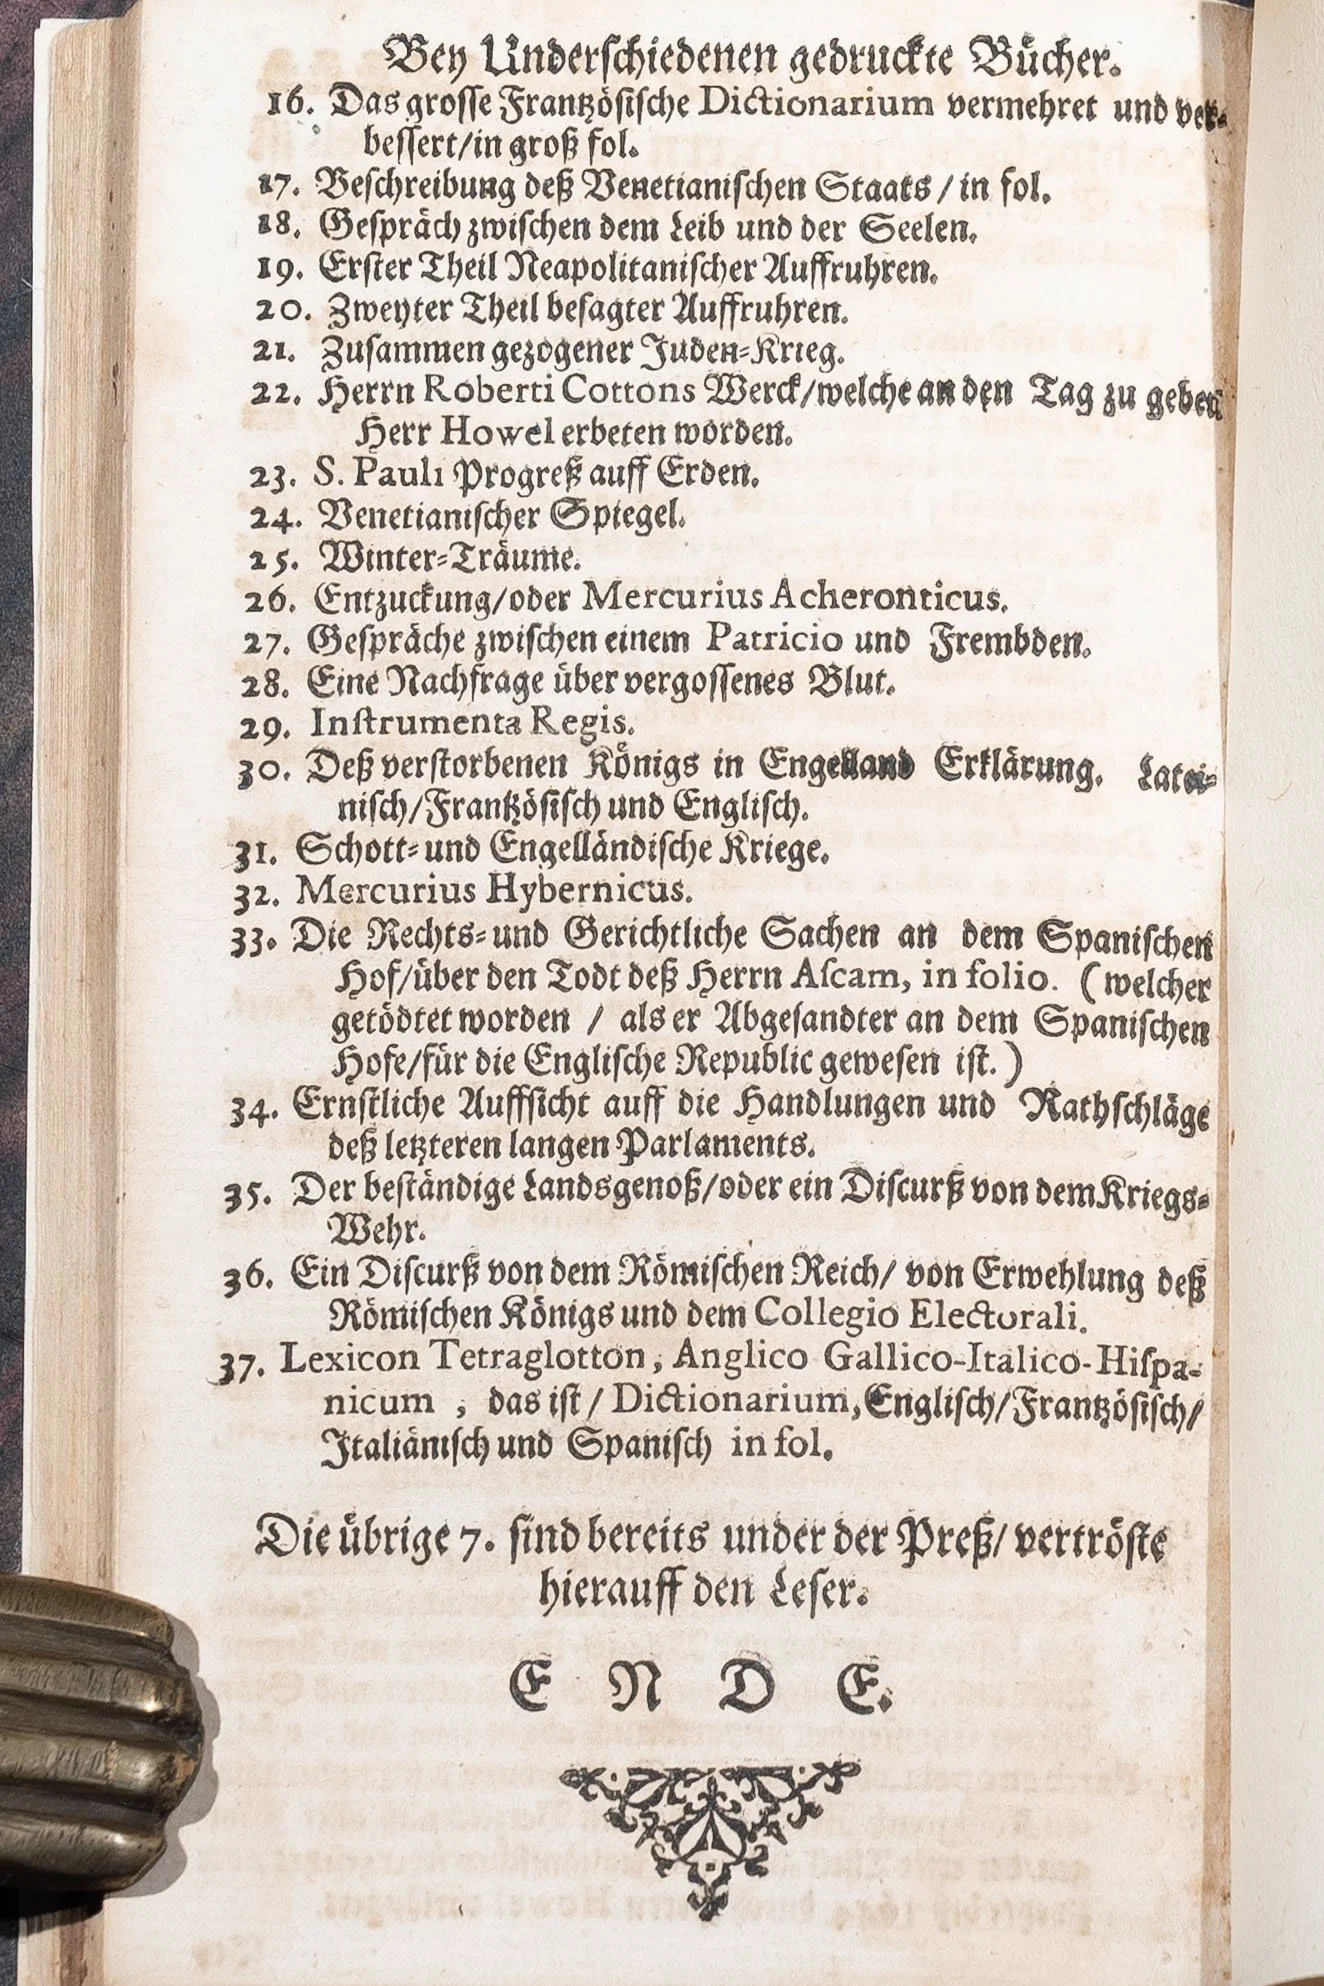 Bey Underſchiedenen gedruckte Bücher.
16. Das groſſe Frantzöſiſche Dictionarium vermehret und ver-
beſſert/in groß fol.
17. Beſchreibung deß Venetianiſchen Staats / in fol.
18. Geſpräch zwiſchen dem Leib und der Seelen.
19. Erſter Theil Neapolitaniſcher Auffruhren.
20. Zweyter Theil beſagter Auffruhren.
21. Zuſammen gezogener Juden-Krieg.
22. Herrn Roberti Cottons Werck/welche an den Tag zu geben
Herr Howel erbeten worden.
23. S. Pauli Progreß auff Erden.
24. Venetianiſcher Spiegel.
25. Winter-Träume.
26. Entzuckung/oder Mercurius Acheronticus.
27. Geſpräche zwiſchen einem Patricio und Frembden.
28. Eine Nachfrage über vergoſſenes Blut.
29. Inſtrumenta Regis.
30. Deß verſtorbenen Königs in Engelland Erklärung. Latei-
niſch/Frantzöſiſch und Engliſch.
31. Schott- und Engelländiſche Kriege.
32. Mercurius Hybernicus.
33. Die Rechts- und Gerichtliche Sachen an dem Spaniſchen
Hof/über den Todt deß Herrn Aſcam, in folio. (welcher
getödtet worden / als er Abgeſandter an dem Spaniſchen
Hofe/für die Engliſche Republic geweſen iſt.)
34. Ernſtliche Auffſicht auff die Handlungen und Rathſchläge
deß letzteren langen Parlaments.
35. Der beſtändige Landsgenoß/oder ein Diſcurß von dem Kriegs-
Wehr.
36. Ein Diſcurß von dem Römiſchen Reich/ von Erwehlung deß
Römiſchen Königs und dem Collegio Electorali.
37. Lexicon Tetraglotton, Anglico Gallico-Italico-Hiſpa-
nicum, das iſt / Dictionarium, Engliſch/Frantzöſiſch/
Italiäniſch und Spaniſch in fol.
Die übrige 7. ſind bereits under der Preß/ vertröſte
hierauff den Leſer.
E N D E.